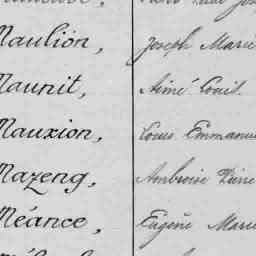 Maulion, Joseph Marie
Maunit, Aimé Louis.
Mauxion, Louis Emmanu
Mazeng, Ambroise Pierre
Méance, Eugène Marie